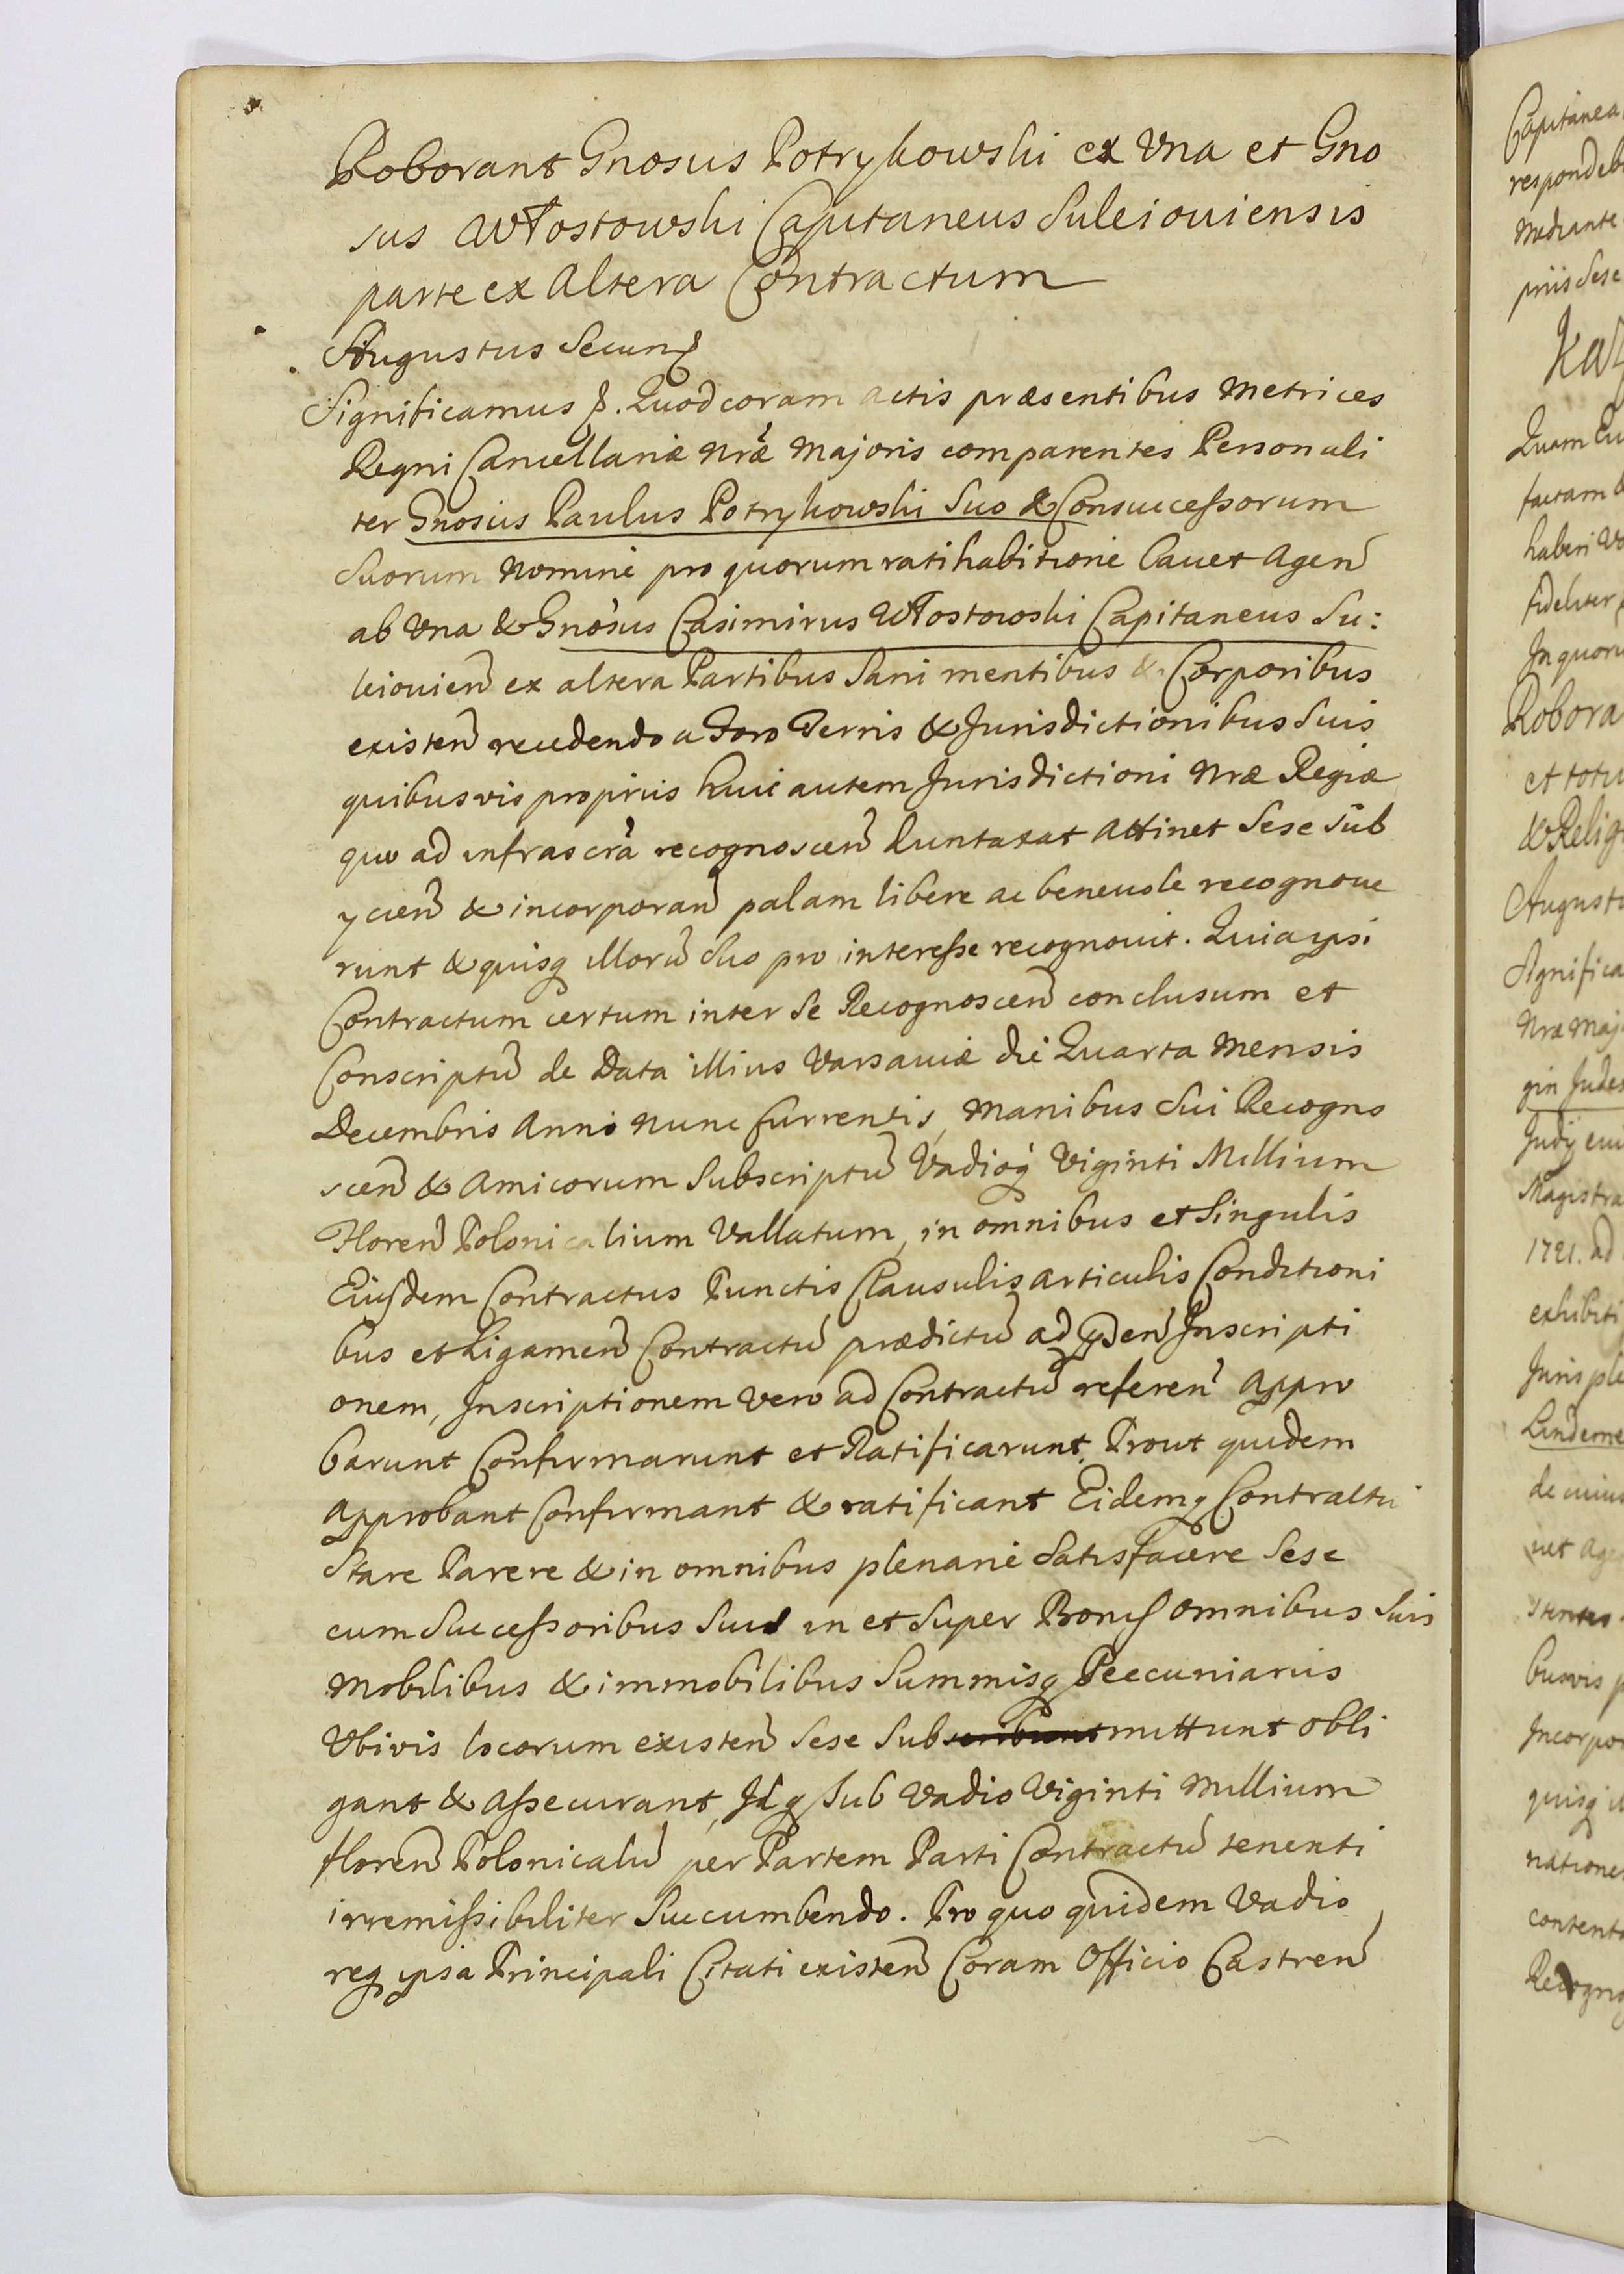 Roborant Gnosus Potrykowski ex Vna et Gno
sus Włostowski Capitaneus Suleiouiensis
parte ex Altera Contractum
Augustus Secun
Significamus Quod coram actis præsentibus Metrices
Regni Cancellariæ nræ Majoris comparentes Personali
ter Gnosus Paulus Potrykowski Suo & Consuccessorum
Suorum Nomine pro quorum ratihabitione Cauet Agen
ab Vna & Gnosus Casimirus Włostowski Capitaneus Su:
leiouien ex altera Partibus Sani mentibus & Corporibus
existen recedendo a Foro Terris & Jurisdictionibus Suis
quibusvis proprijs huic autem Jurisdictioni Nræ Regiæ
quo ad infrascra recognoscen duntaxat Attinet Sese Sub
ycien & incorporan palam libere ac beneuole recognoue
runt & quisq illorū Suo pro interesse recognouit. Quia ipsi
Contractum certum inter Se Recognoscen conclusum et
Conscriptū de Data illius Varsauiæ die Quarta Mensis
Decembris Anni nunc Currentis, Manibus Sui Recogno
scen & Amicorum Subscriptū Vadioq Viginti Millium
Floren Polonicalium Vallatum, in omnibus et Singulis
Eiusdem Contractus Punctis Clausulis Articulis Conditioni
bus et Ligamen Contractū prædictū ad Inscripti
onem, Inscriptionem vero ad Contractū referen Appro
barunt Confirmarunt et Ratificarunt, Prout quidem
Approbant Confirmant & ratificant Eidemq Contractui
Stare Parere & in omnibus plenarie Satisfacere Sese
cum Successoribus Suis in et Super Bonis omnibus Suis
Mobilibus & immobilibus Summisq Peecuniarijs
Vbivis locorum existen Sese Subscribunt mittunt obli
gant & Assecurant, Idq Sub Vadio Viginti Millium
floren Polonicaliū per Partem Parti Contractū tenenti
irremissibiliter Succumbendo. Pro quo quidem Vadio
req ipsa Principali Citati existen Coram Officio Castren
Capitanea
respondeb
Mediante
priis Sese
Quam
factam
haberi
fideliter
In quoru
Robora
et totu
& Relig
Augustu
Significa
Nræ Maj
gin Judæ
Magistra
1721. ad
exhibiti
Juris ple
Lindeme
de cuius
busvis p
Incorpor
quisq
contenta
Recogno